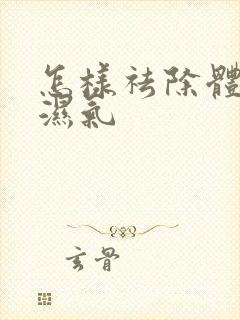 怎樣祛除體
濕氣
玄骨